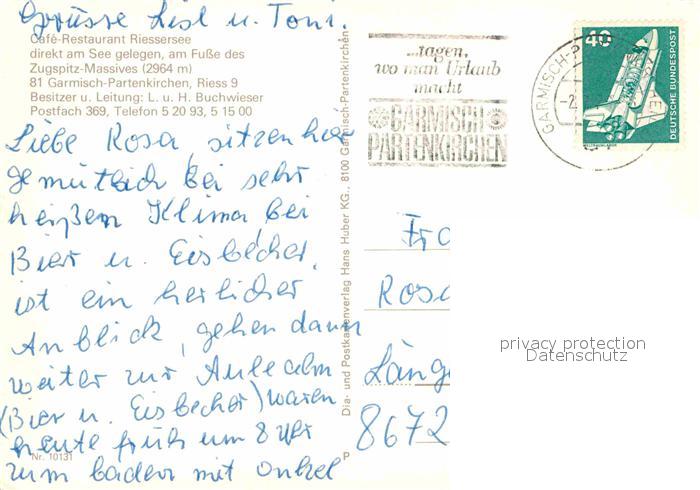 Grüsse Lisl u. Toni.
Café-Restaurant Riessersee
direkt am See gelegen, am Fuße des
Zugspitz-Massives (2964 m)
81 Garmisch-Partenkirchen, Riess 9
Besitzer u. Leitung: L. u. H. Buchwieser
Postfach 369, Telefon 5 20 93, 5 15 00
Liebe Rosa, sitzen hier
gemütlich bei sehr
heißem Klima, bei
Bier u. Eisbecher,
ist ein herlicher
Anblick, gehen dann
weiter zur
(Bier u. Eisbecher) waren
heute früh um 8 Uhr
zum baden mit Onkel
Nr. 10131
P
Dia- und Postkartenverlag Hans Huber KG., 8100 Garmisch-Partenkirchen
...tagen,
wo man Urlaub
macht
GARMISCH
PARTENKIRCHEN
GARMISCH-P
-2.
40
DEUTSCHE BUNDESPOST
WELTRAUMLABOR
Fra
Rosa
Läng
8672
privacy protection
Datenschutz